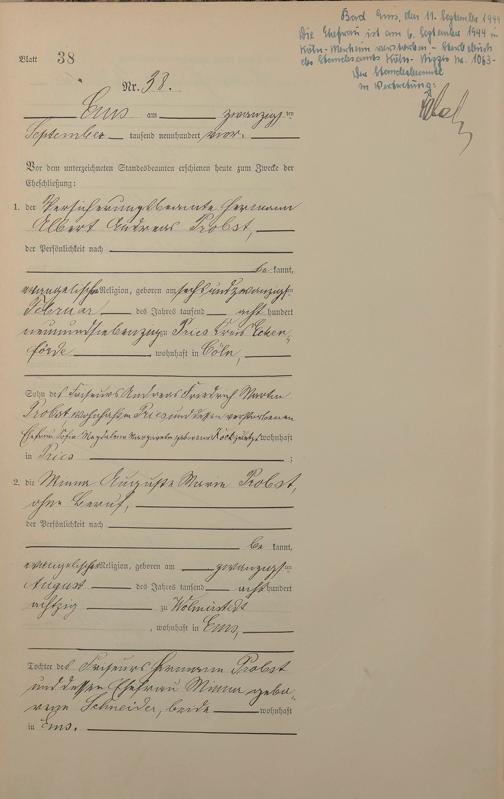 Bad Ems, den 11. September 1944
Die Ehefrau ist am 6. September 1944 in
Köln-Merheim verstorben - Sterbebuch
des Standesamts Köln- Nr. 1063-
Der Standesbeamte
in Vertretung:
Blatt 38
Nr. 38.
Ems am zwanzigsten
September tausend neunhundert vier.
Vor dem unterzeichneten Standesbeamten erschienen heute zum Zwecke der
Eheschließung:
1. der Versicherungsbeamte Hermann
Albert Andreas Probst,
der Persönlichkeit nach
be kannt,
evangelischer Religion, geboren am sechsundzwanzigsten
Februar des Jahres tausend acht hundert
neunundsiebenzig zu Pries Kreis Ecken-
förde, wohnhaft in Cöln,
Sohn des Friseurs Andreas Friedrich Martin
Probst, wohnhaft in Pries und dessen verstorbenen
Ehefrau Sofia Magdalena Margareta geborene zuletzt wohnhaft
in Pries ;
2. die Minna Auguste Marie Probst,
ohne Beruf,
der Persönlichkeit nach
be kannt,
evangelischer Religion, geboren am zwanzigsten
August des Jahres tausend acht hundert
achtzig zu Wolmirstedt
, wohnhaft in Ems,
Tochter des Friseurs Hermann Probst
und dessen Ehefrau Minna gebo-
rene Schneider, beide wohnhaft
in Ems.